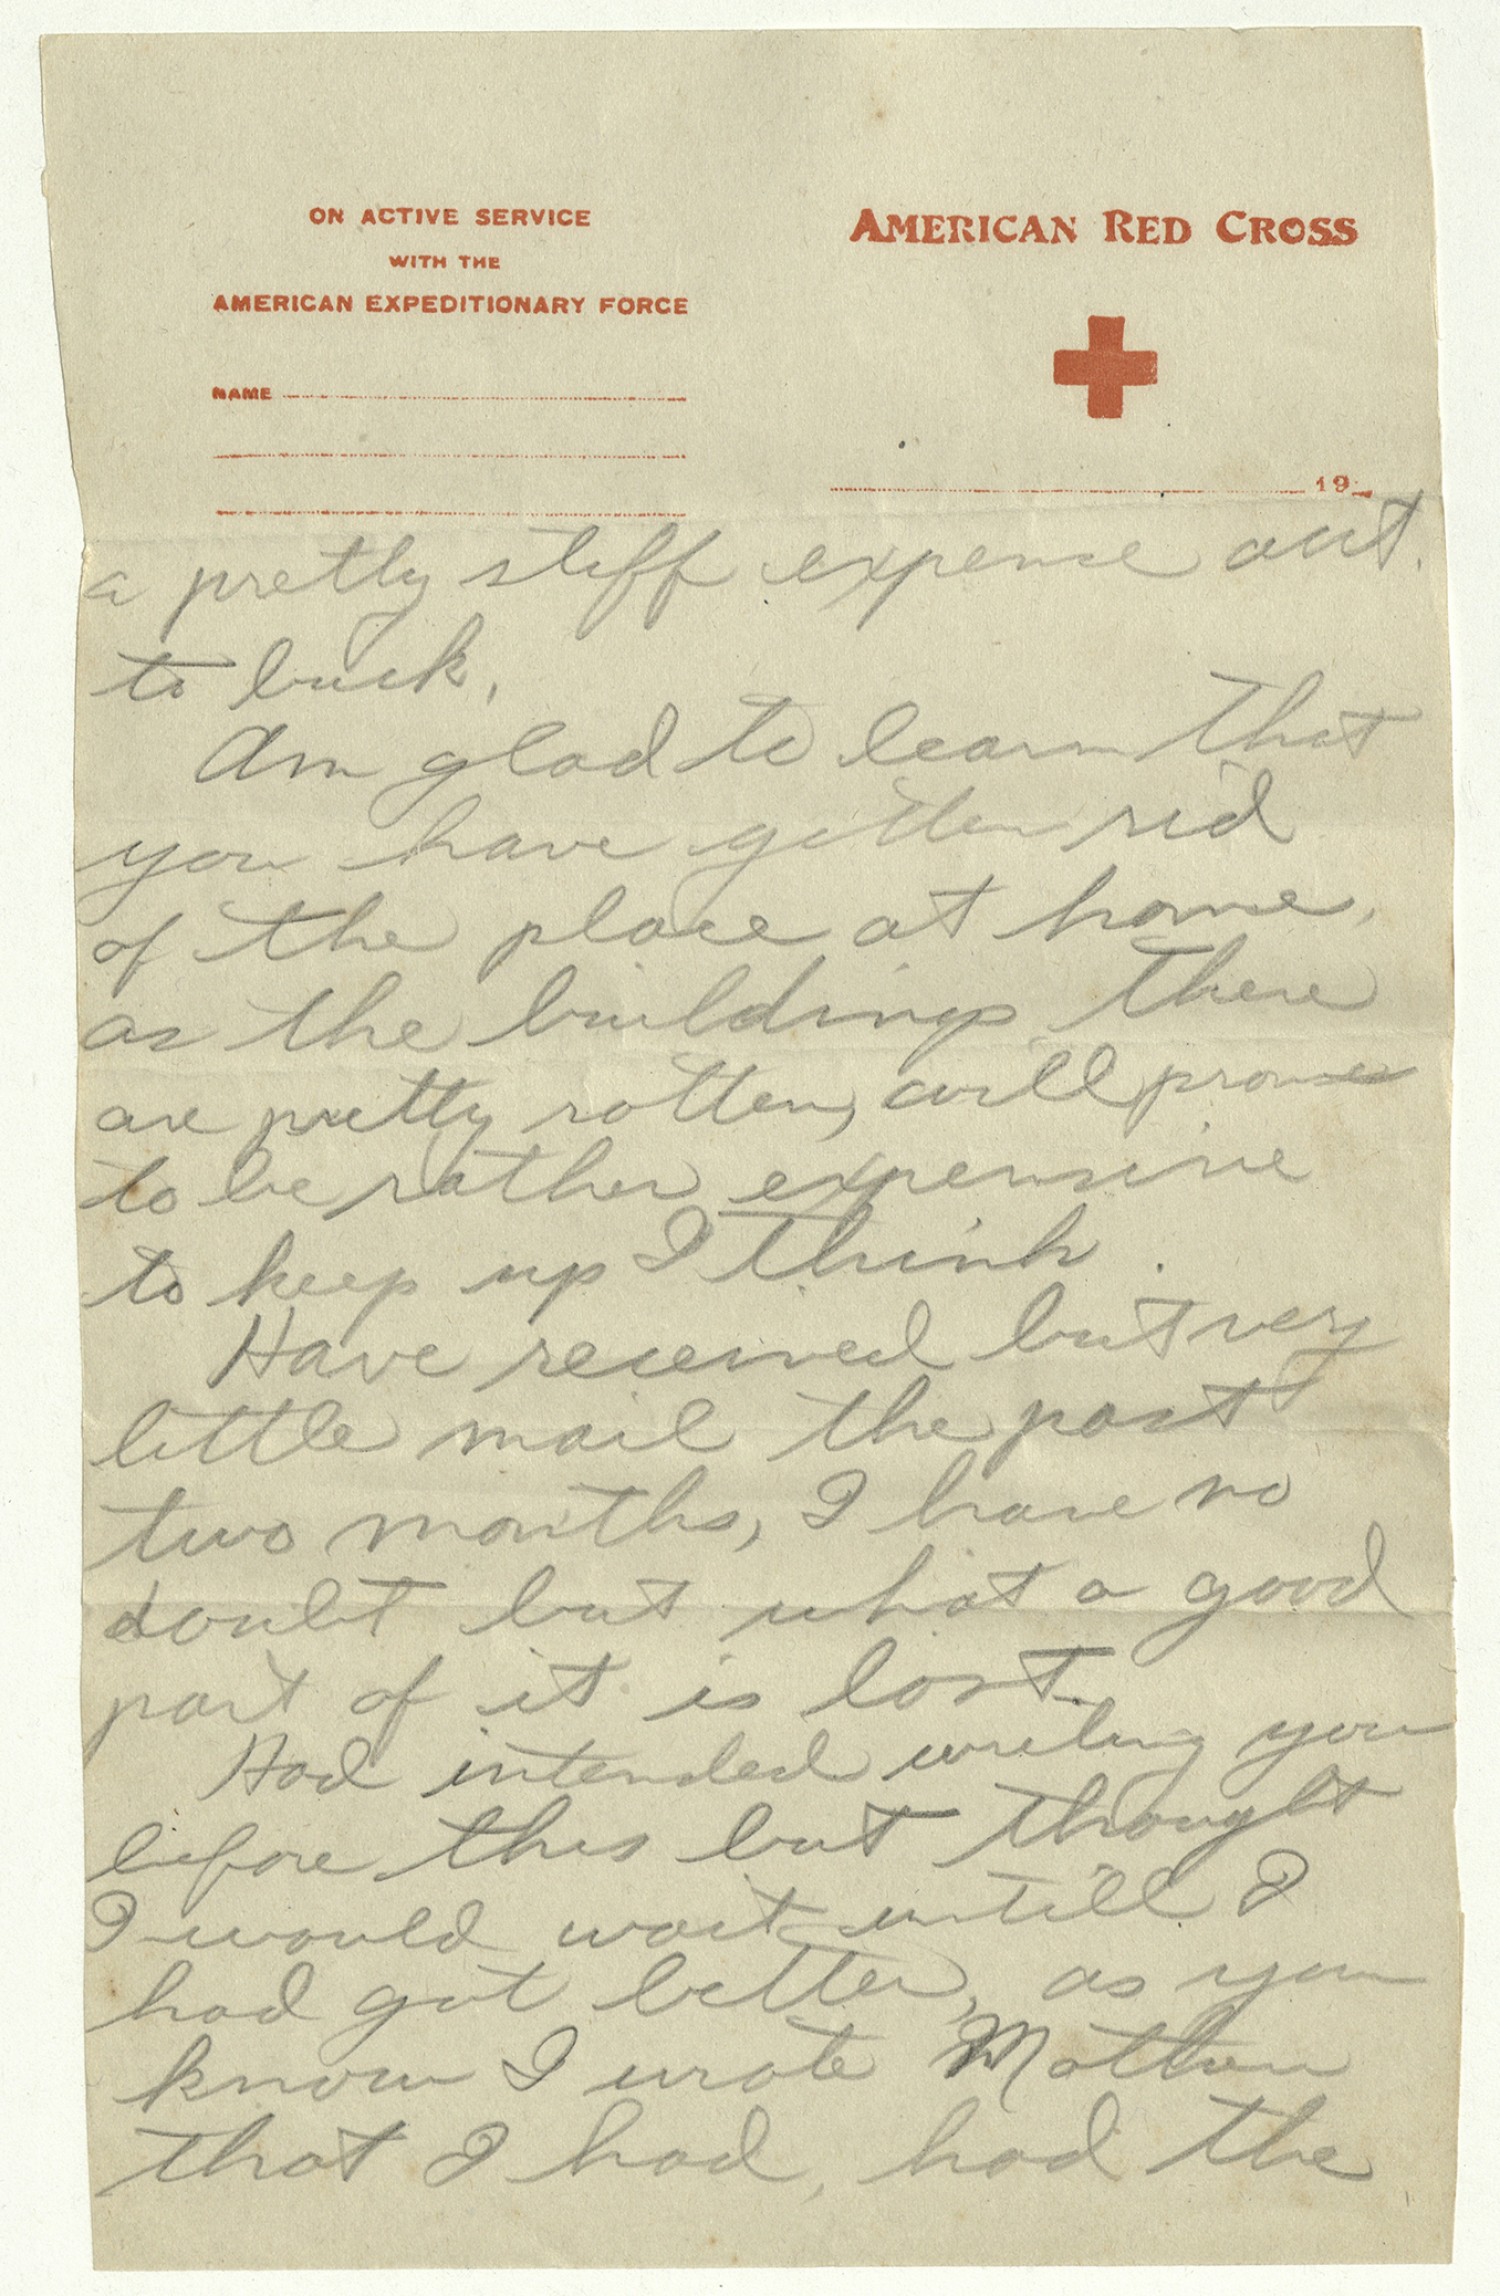 ON ACTIVE SERVICE
WITH THE
AMERICAN EXPEDITIONARY FORCE
NAME
AMERICAN RED CROSS
19
a pretty stiff expense out.
to buck.
Am glad to learn that
you have gotten rid
of the place at home,
as the buildings there
are pretty rotten, will prove
to be rather expensive
to keep up I think.
Have received but very
little mail the past
two months, I have no
doubt but what a good
part of it is lost.
Had intended writing you
before this but thought
I would wait untill I
had got better, as you
know I wrote Mother
that I had, had the